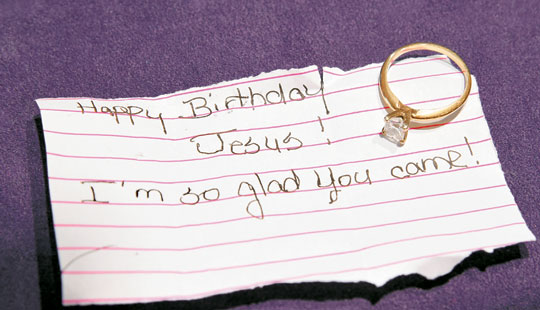 Happy Birthday
Jesus!
I'm so glad you came!